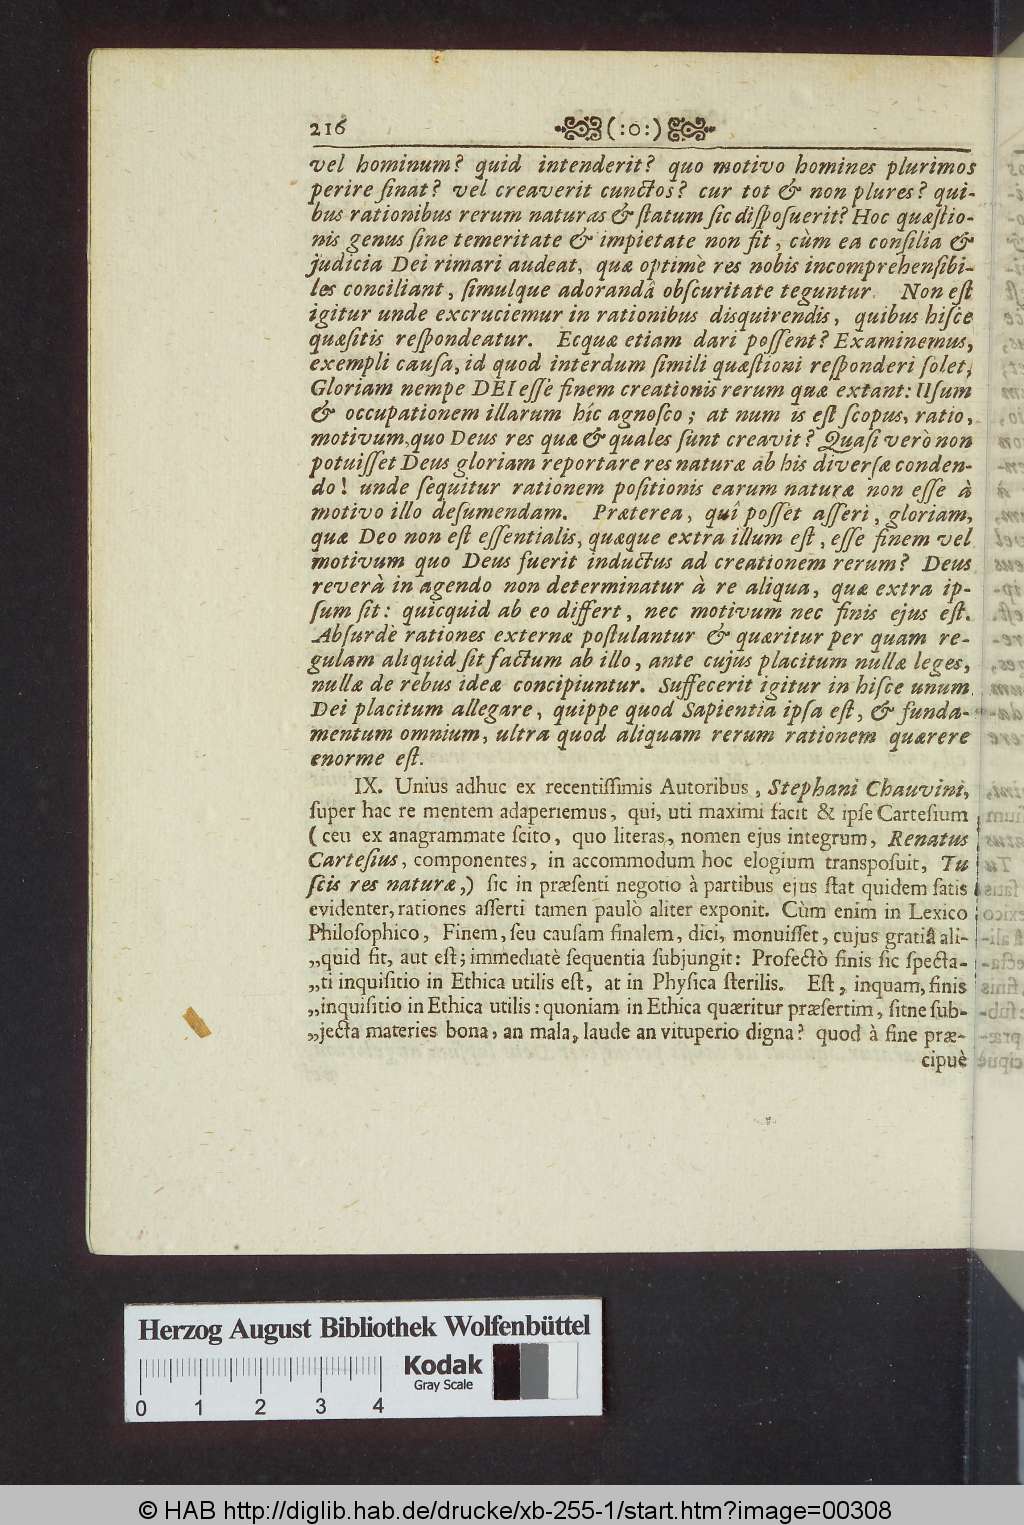 216 (:o:)
vel hominum? quid intenderit? quo motivo homines plurimos
perire ſinat? vel creaverit cunctos? cur tot & non plures? qui-
bus rationibus rerum naturas & ſtatum ſic diſpoſuerit? Hoc quæſtio-
nis genus ſine temeritate & impietate non fit, cùm ea conſilia &
judicia Dei rimari audeat, quæ optimè res nobis incomprehenſibi-
les conciliant, ſimulque adorandâ obſcuritate teguntur. Non eſt
igitur unde excruciemur in rationibus disquirendis, quibus hiſce
quæſitis reſpondeatur. Ecquæ etiam dari poſſent? Examinemus,
exempli cauſa, id quod interdum ſimili quæſtioni reſponderi ſolet,
Gloriam nempe DEI eſſe finem creationis rerum quæ extant: Uſum
& occupationem illarum hic agnoſco; at num is eſt ſcopus, ratio,
motivum, quo Deus res quæ & quales ſunt creavit? Quaſi verò non
potuiſſet Deus gloriam reportare res naturæ ab his diverſæ conden-
do! unde ſequitur rationem poſitionis earum naturæ non eſſe à
motivo illo deſumendam. Præterea, quî poſſet aſſeri, gloriam,
quæ Deo non eſt eſſentialis, quæque extra illum eſt, eſſe finem vel
motivum quo Deus fuerit inductus ad creationem rerum? Deus
reverà in agendo non determinatur à re aliqua, quæ extra ip-
ſum ſit: quicquid ab eo differt, nec motivum nec finis ejus eſt.
Abſurdè rationes externæ poſtulantur & quæritur per quam re-
gulam aliquid ſit factum ab illo, ante cujus placitum nullæ leges,
nullæ de rebus ideæ concipiuntur. Suffecerit igitur in hiſce unum
Dei placitum allegare, quippe quod Sapientia ipſa eſt, & funda-
mentum omnium, ultra quod aliquam rerum rationem quærere
enorme eſt.
IX. Unius adhuc ex recentiſſimis Autoribus, Stephani Chauvini,
ſuper hac re mentem adaperiemus, qui, uti maximi facit & ipſe Carteſium
(ceu ex anagrammate ſcito, quo literas, nomen ejus integrum, Renatus
Carteſius, componentes, in accommodum hoc elogium transpoſuit, Tu
ſcis res naturæ,) ſic in præſenti negotio à partibus ejus ſtat quidem ſatis
evidenter, rationes aſſerti tamen paulò aliter exponit. Cùm enim in Lexico
Philoſophico, Finem, ſeu cauſam finalem, dici, monuiſſet, cujus gratiâ ali-
„quid fit, aut eſt; immediatè ſequentia ſubjungit: Profectò finis ſic ſpecta-
„ti inquiſitio in Ethica utilis eſt, at in Phyſica ſterilis. Eſt, inquam, finis
„inquiſitio in Ethica utilis: quoniam in Ethica quæritur præſertim, ſitne ſub-
„jecta materies bona, an mala, laude an vituperio digna? quod à fine præ-
cipuè
Herzog August Bibliothek Wolfenbüttel
Kodak
Gray Scale
0 1 2 3 4
© HAB http://diglib.hab.de/drucke/xb-255-1/start.htm?image=00308